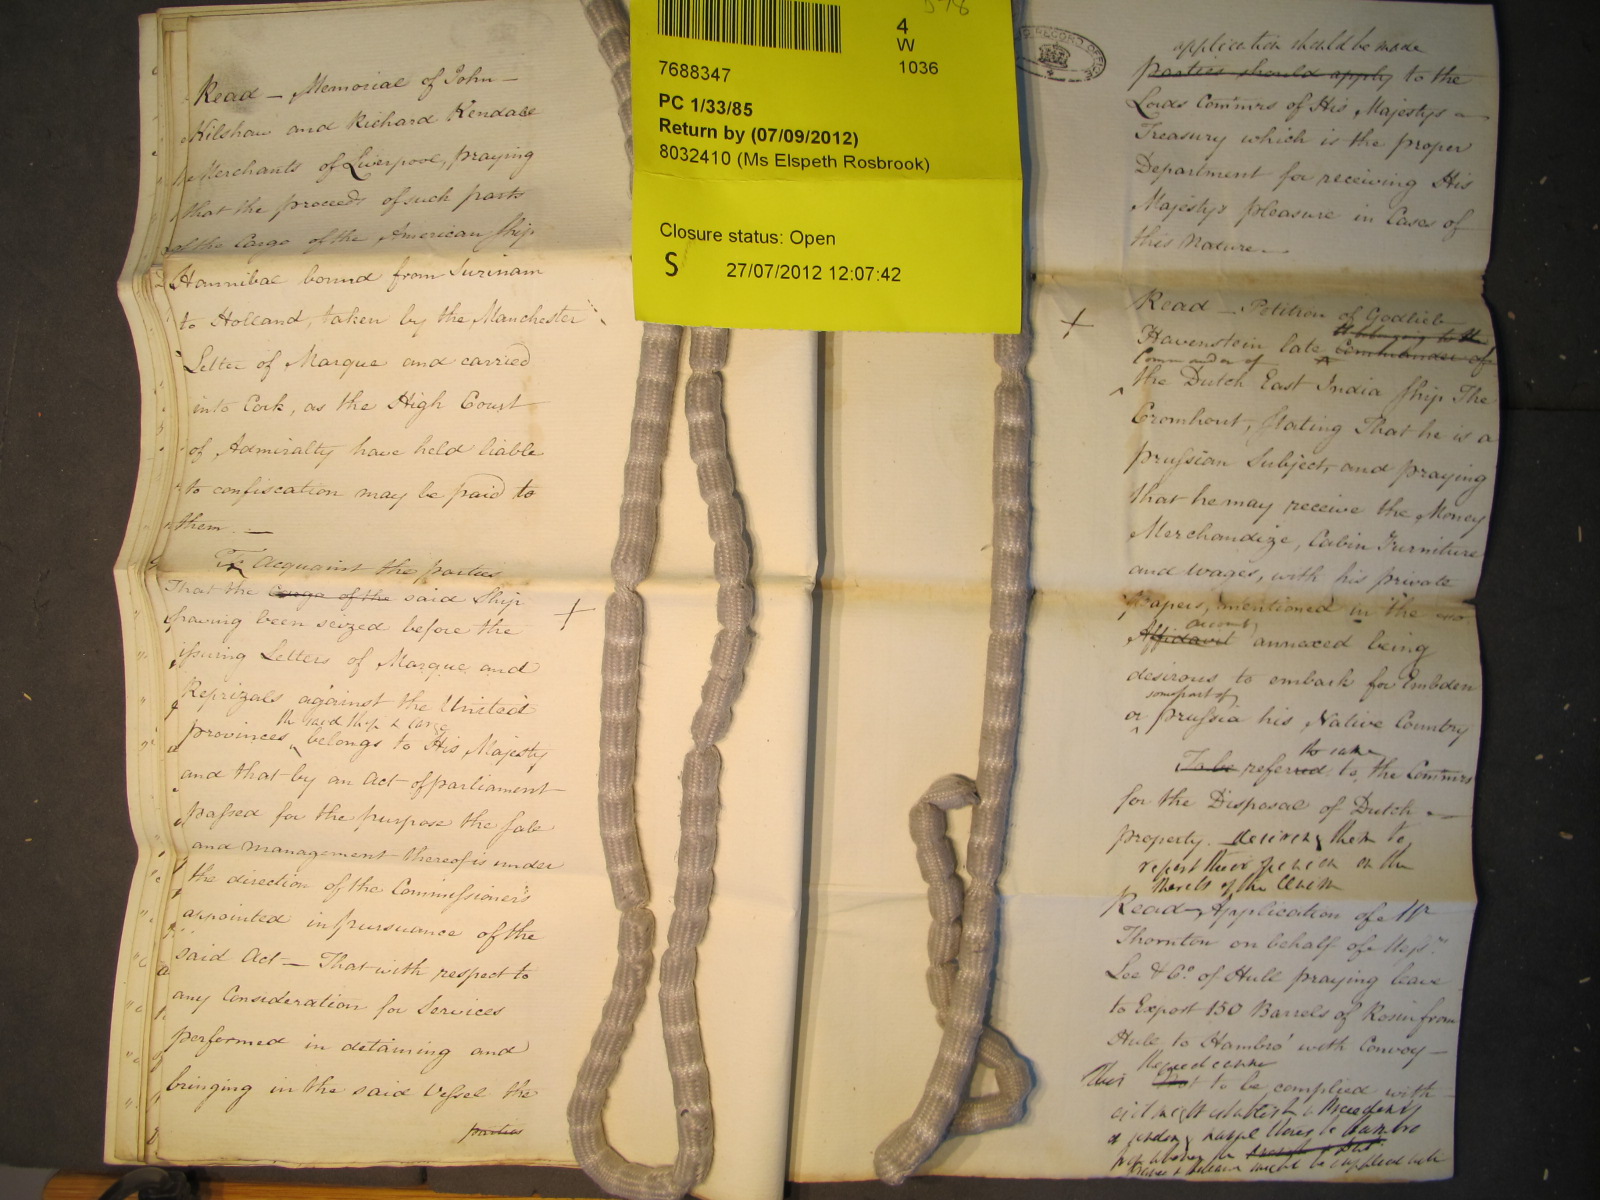 Read – Memorial of John –
Kilshaw and Richard Kendall
Merchants of Liverpool, praying
that the proceeds of such parts
of the Cargo of the American Ship
Hannibal bound from Surinam
to Holland, taken by the Manchester
Letter of Marque and carried
into Cork, as the High Court
of Admiralty have held liable
to confiscation may be paid to
them. —
To Acquaint the parties
That the Cargo of the said Ship
having been seized before the
issuing Letters of Marque and
Reprizals against the United
the said Ship & Cargo
provinces belongs to His Majesty
and that by an Act of parliament
passed for the purpose the sale
and management thereof is under
the direction of the Commissioners
appointed in pursuance of the
said Act — That with respect to
any Consideration for Services
performed in detaining and
bringing in the said Vessel the
parties
4
W
1036
7688347
PC 1/33/85
Return by (07/09/2012)
8032410 (Ms Elspeth Rosbrook)
Closure status: Open
S 27/07/2012 12:07:42
RECORD OFFICE
application should be made
parties should apply to the
Lords Commrs of His Majestys
Treasury which is the proper
Department for receiving His
Majestys pleasure in Cases of
this Nature —
Read – Petition of Godlieb
Havenstein late Commander of
Commander of
the Dutch East India Ship The
Cromhout, Stating That he is a
prussian Subject, and praying
that he may receive the Money
Merchandize, Cabin Furniture
and wages, with his private
papers, mentioned in the
account
Affidavit annexed being
desirous to embark for Embden
some part of
or prussia his Native Country
the same
To be referred to the Commrs
for the Disposal of Dutch
property. desiring them to
report their opinion on the
Merits of the Claim
Read – Application of Mr
Thornton on behalf of Messrs
Lee & Co. of Hull praying leave
to Export 150 Barrels of Rosin from
Hull to Hambro' with Convoy —
This Not to be complied with